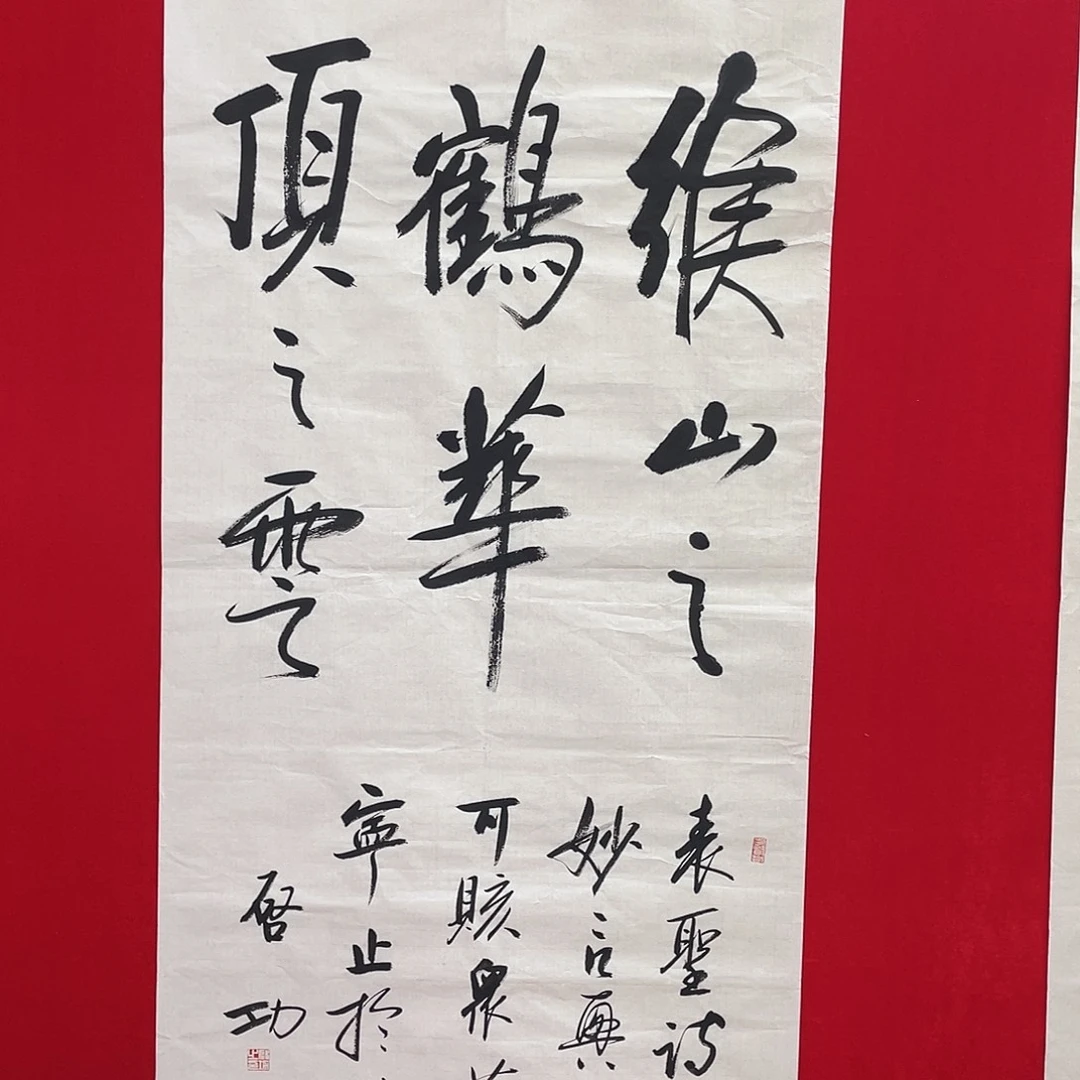 緱山之
鶴華
頂之雲
表聖詩
妙言
可賅眾
寧止於
啓功